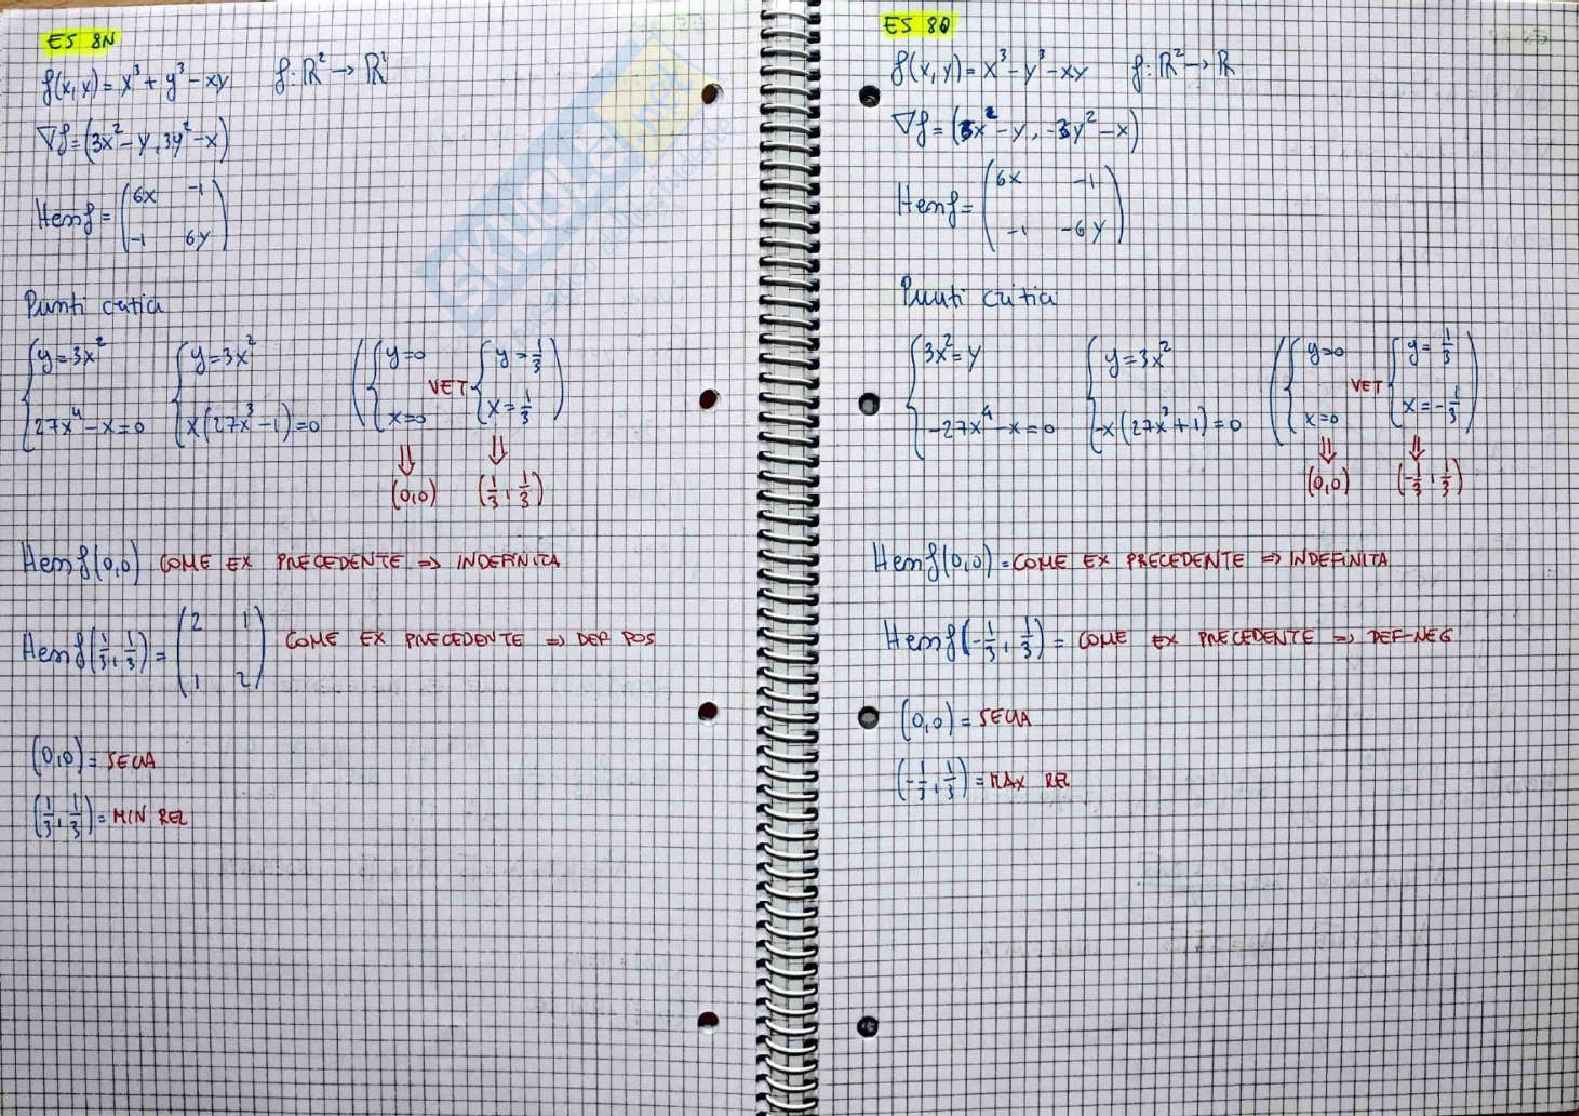 ES 8N
f(x,y) = x³ + y³ - xy f: R² → R
∇f = (3x² - y, 3y² - x)
Hessf = (6x -1
-1 6y)
Punti critici
{y = 3x² {y = 3x² ({y=0 VET {y = 1/3)
{27x⁴ - x = 0 {x(27x³ - 1) = 0 {x=0 {x = 1/3
⇓ ⇓
(0,0) (1/3, 1/3)
Hessf(0,0) COME EX PRECEDENTE ⇒ INDEFINITA
Hessf(1/3, 1/3) = (2 1
1 2) COME EX PRECEDENTE ⇒ DEF POS
(0,0) = SELLA
(1/3, 1/3) = MIN REL
ES 8O
f(x,y) = x³ - y³ - xy f: R² → R
∇f = (3x² - y, -3y² - x)
Hessf = (6x -1
-1 -6y)
Punti critici
{3x² = y {y = 3x² ({y=0 VET {y = 1/3)
{-27x⁴ - x = 0 {-x(27x³ + 1) = 0 {x=0 {x = -1/3
⇓ ⇓
(0,0) (-1/3, 1/3)
Hessf(0,0) = COME EX PRECEDENTE ⇒ INDEFINITA
Hessf(-1/3, 1/3) = COME EX PRECEDENTE ⇒ DEF-NEG
(0,0) = SELLA
(-1/3, 1/3) = MAX REL
SKUOLA.net